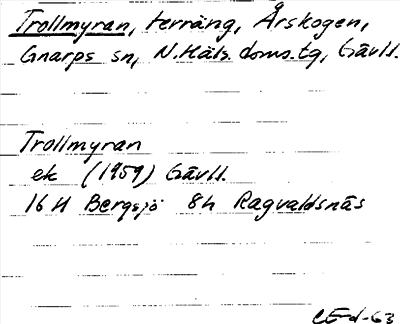 Trollmyran, terräng, Årskogen,
Gnarps sn, N.Häls. doms.tg, Gävl.
Trollmyran
ek (1959) Gävl.
16 H Bergsjö 8h Ragvaldsnäs
CE-d-63